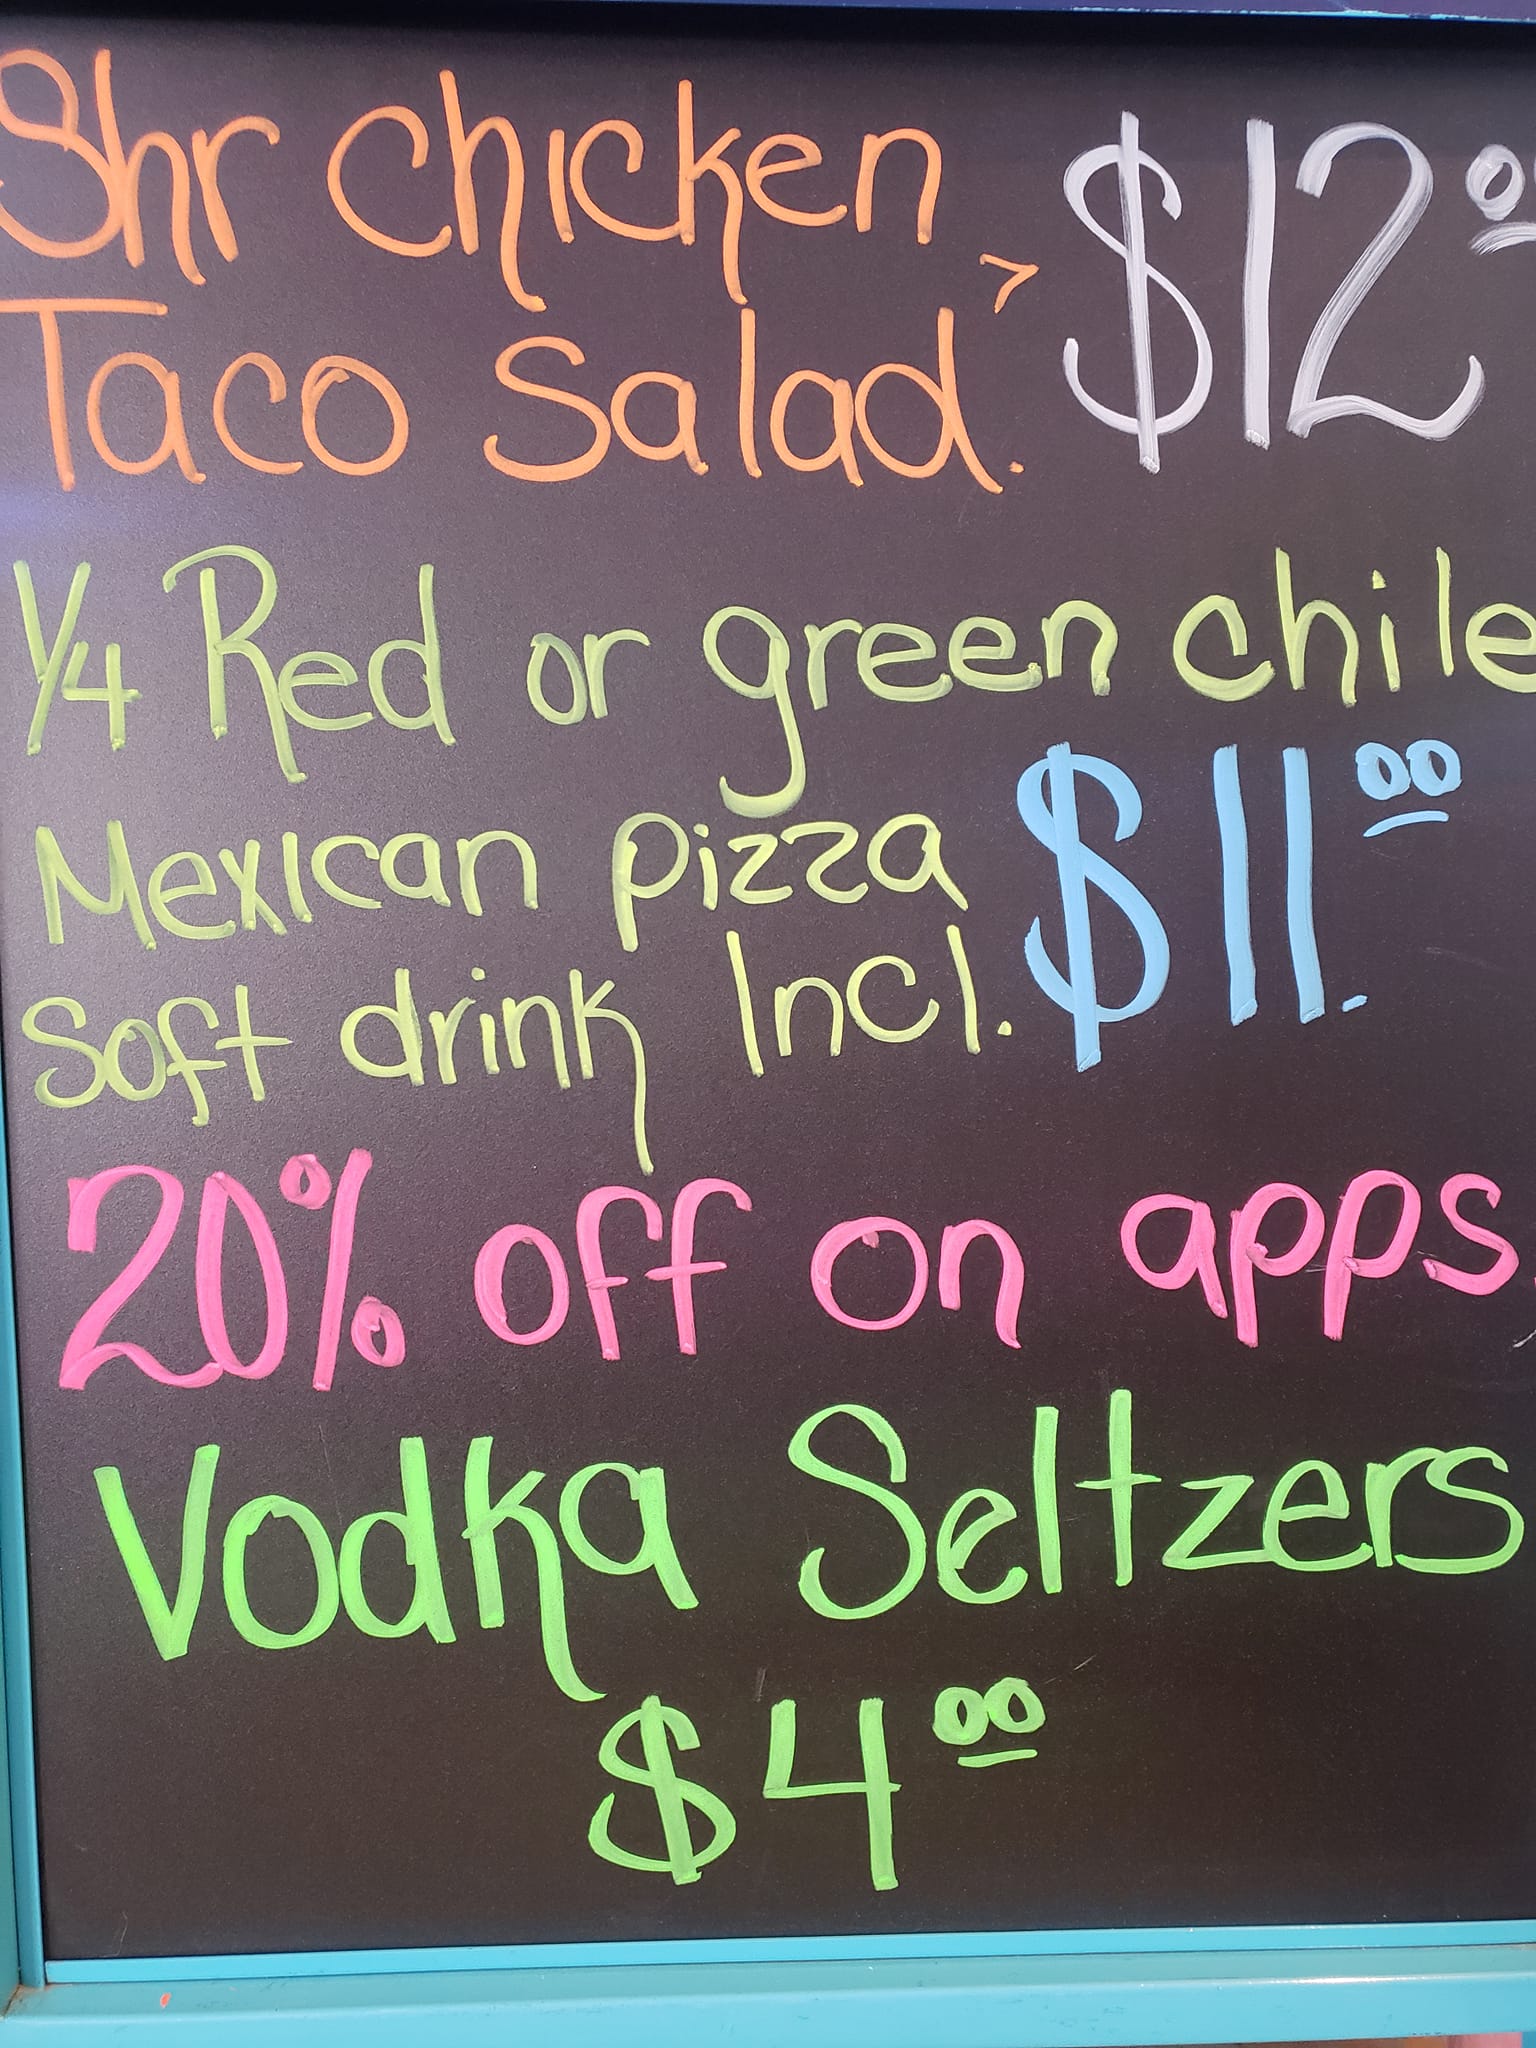 Shr chicken
Taco Salad. > $12.00
1/4 Red or green chile
Mexican pizza
Soft drink Incl. $11.00
20% off on apps.
Vodka Seltzers
$4.00